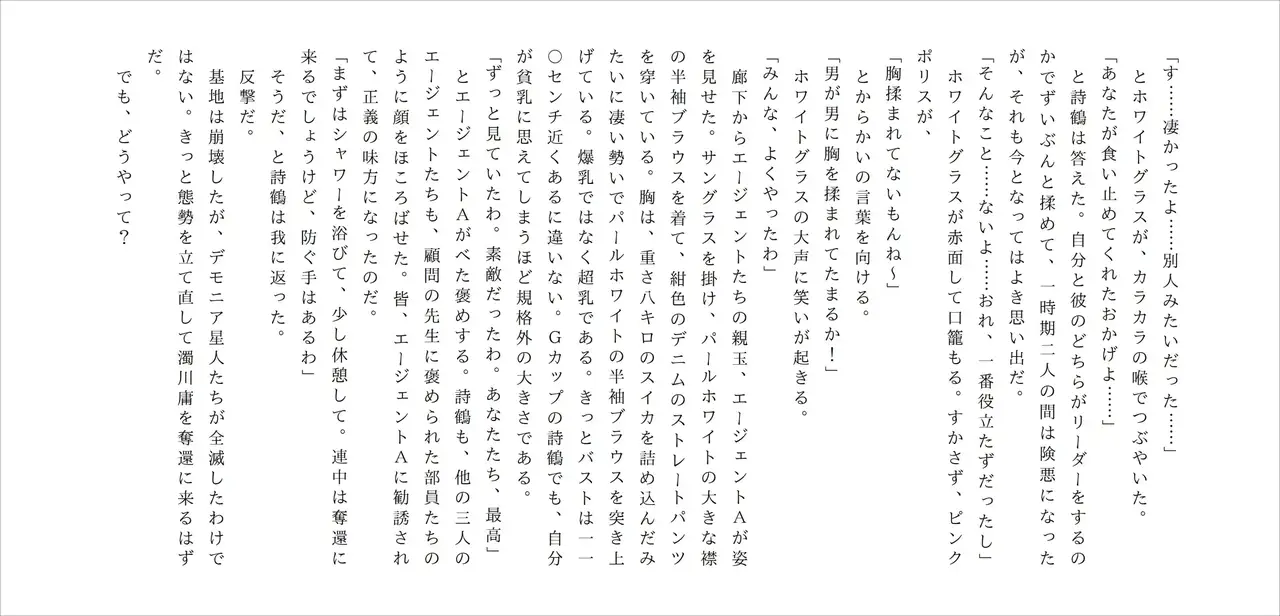 「す……凄かったよ……別人みたいだった……」
とホワイトグラスが、カラカラの喉でつぶやいた。
「あなたが食い止めてくれたおかげよ……」
と詩鶴は答えた。自分と彼のどちらがリーダーをするの
かでずいぶんと揉めて、一時期二人の間は険悪になった
が、それも今となってはよき思い出だ。
「そんなこと……ないよ……おれ、一番役立たずだったし」
ホワイトグラスが赤面して口籠もる。すかさず、ピンク
ポリスが、
「胸揉まれてないもんね～」
とからかいの言葉を向ける。
「男が男に胸を揉まれてたまるか！」
ホワイトグラスの大声に笑いが起きる。
「みんな、よくやったわ」
廊下からエージェントたちの親玉、エージェントAが姿
を見せた。サングラスを掛け、パールホワイトの大きな襟
の半袖ブラウスを着て、紺色のデニムのストレートパンツ
を穿いている。胸は、重さ八キロのスイカを詰め込んだみ
たいに凄い勢いでパールホワイトの半袖ブラウスを突き上
げている。爆乳ではなく超乳である。きっとバストは一一
〇センチ近くあるに違いない。Gカップの詩鶴でも、自分
が貧乳に思えてしまうほど規格外の大きさである。
「ずっと見ていたわ。素敵だったわ。あなたたち、最高」
とエージェントAがべた褒めする。詩鶴も、他の三人の
エージェントたちも、顧問の先生に褒められた部員たちの
ように顔をほころばせた。皆、エージェントAに勧誘され
て、正義の味方になったのだ。
「まずはシャワーを浴びて、少し休憩して。連中は奪還に
来るでしょうけど、防ぐ手はあるわ」
そうだ、と詩鶴は我に返った。
反撃だ。
基地は崩壊したが、デモニア星人たちが全滅したわけで
はない。きっと態勢を立て直して濁川庸を奪還に来るはず
だ。
でも、どうやって？